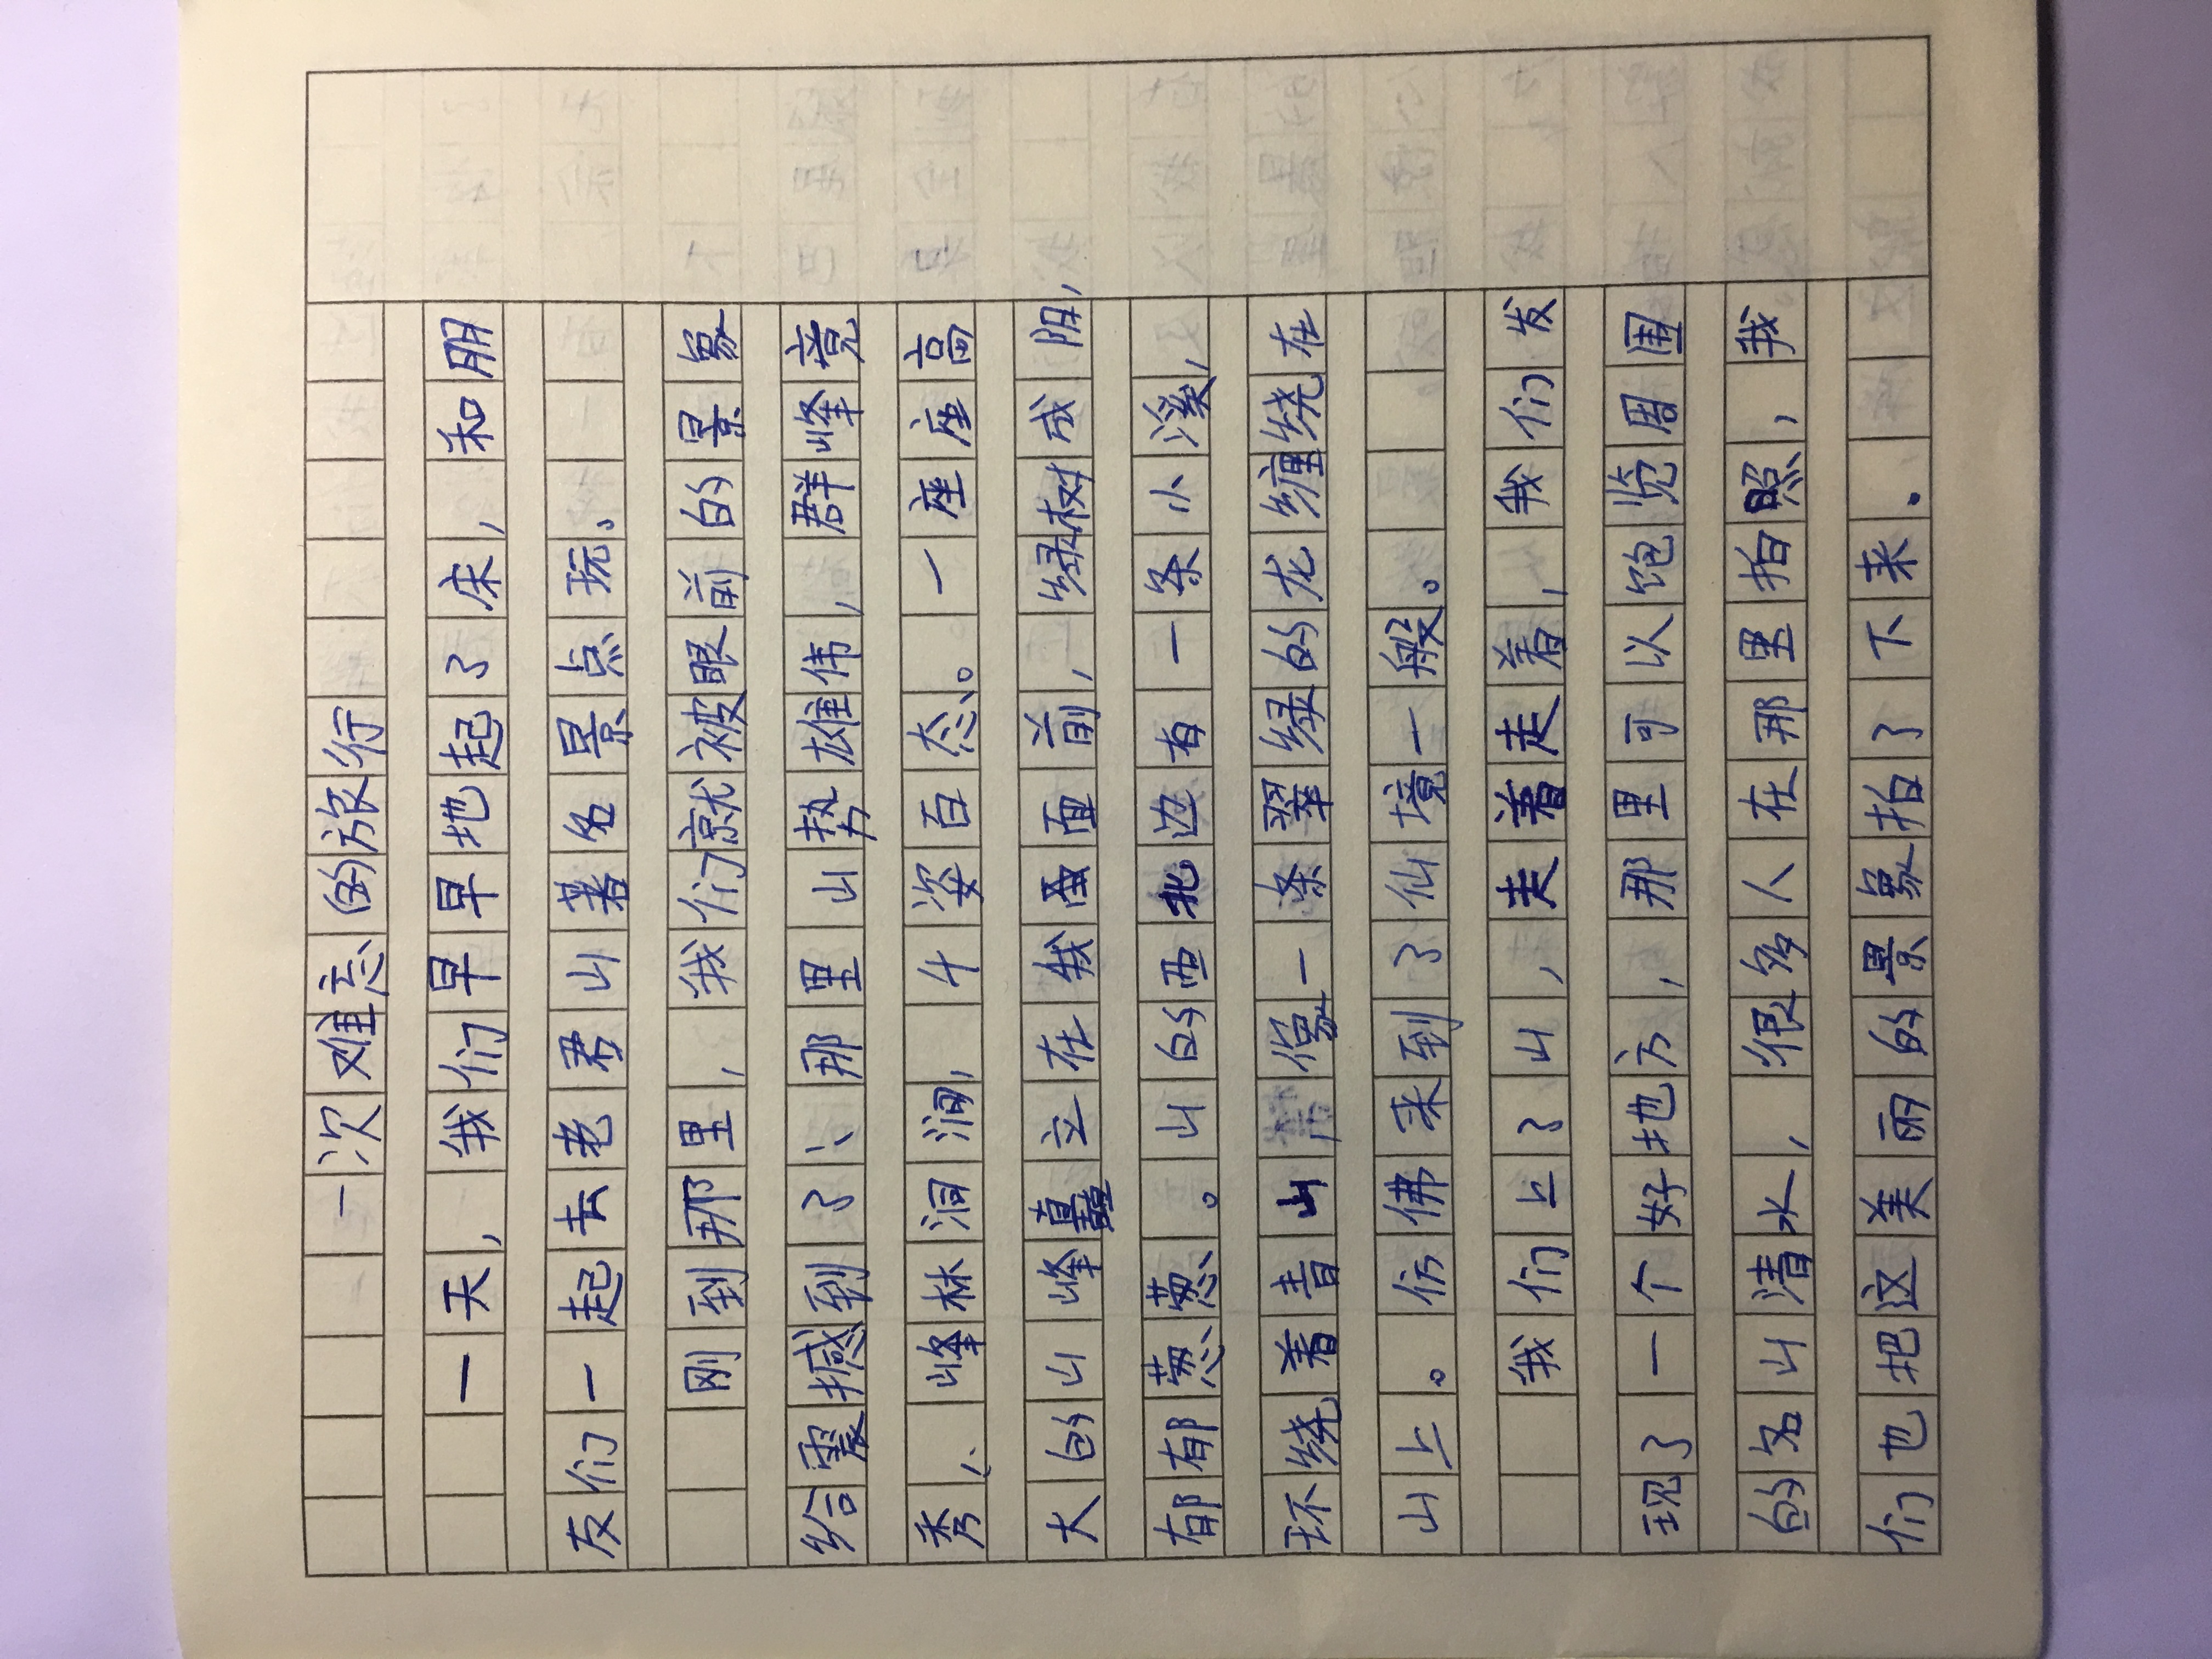 一次难忘的旅行
一天，我们早早地起了床，和朋
友们一起去老君山著名景点玩。
刚到那里，我们就被眼前的景象
给震撼到了、那里山势雄伟，群峰竞
秀、峰林洞涧，千姿百态。一座座高
大的山峰矗立在我面面前，绿树成阴，
郁郁葱葱。山的西北边有一条小溪，
环绕着青山，像一条翠绿的龙缠绕在
山上。仿佛来到了仙境一般。
我们上了山，走着走着，我们发
现了一个好地方，那里可以饱览周围
的名山清水，很多人在那里拍照，我
们也把这美丽的景象拍了下来。